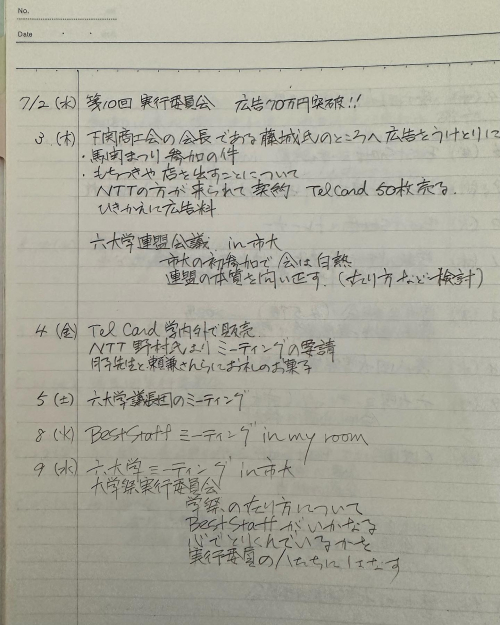 No.
Date
7/2 (水) 第10回 実行委員会 広告70万円突破!!
3 (木) 下関商工会の会長である藤城氏のところへ広告をうけとりに
・馬関まつり参加の件
・もちつきや店を出すことについて
NTTの方が来られて契約 TelCard 50枚売る.
ひきかえに広告料
六大学連盟会議 in市大
市大の初参加で会は白熱
連盟の本質を問い正す.(在り方など検討)
4 (金) Tel Card 学内外で販売
NTT 野村氏よりミーティングの要請
先生と頼兼さんらにお礼のお菓子
5 (土) 六大学議長団のミーティング
8 (火) BestStaff ミーティング in my room
9 (水) 六大学ミーティング in市大
大学祭実行委員会
学祭の在り方について
BestStaffがいかなる
心でとりくんでいるかを
実行委員の人たちにはなす